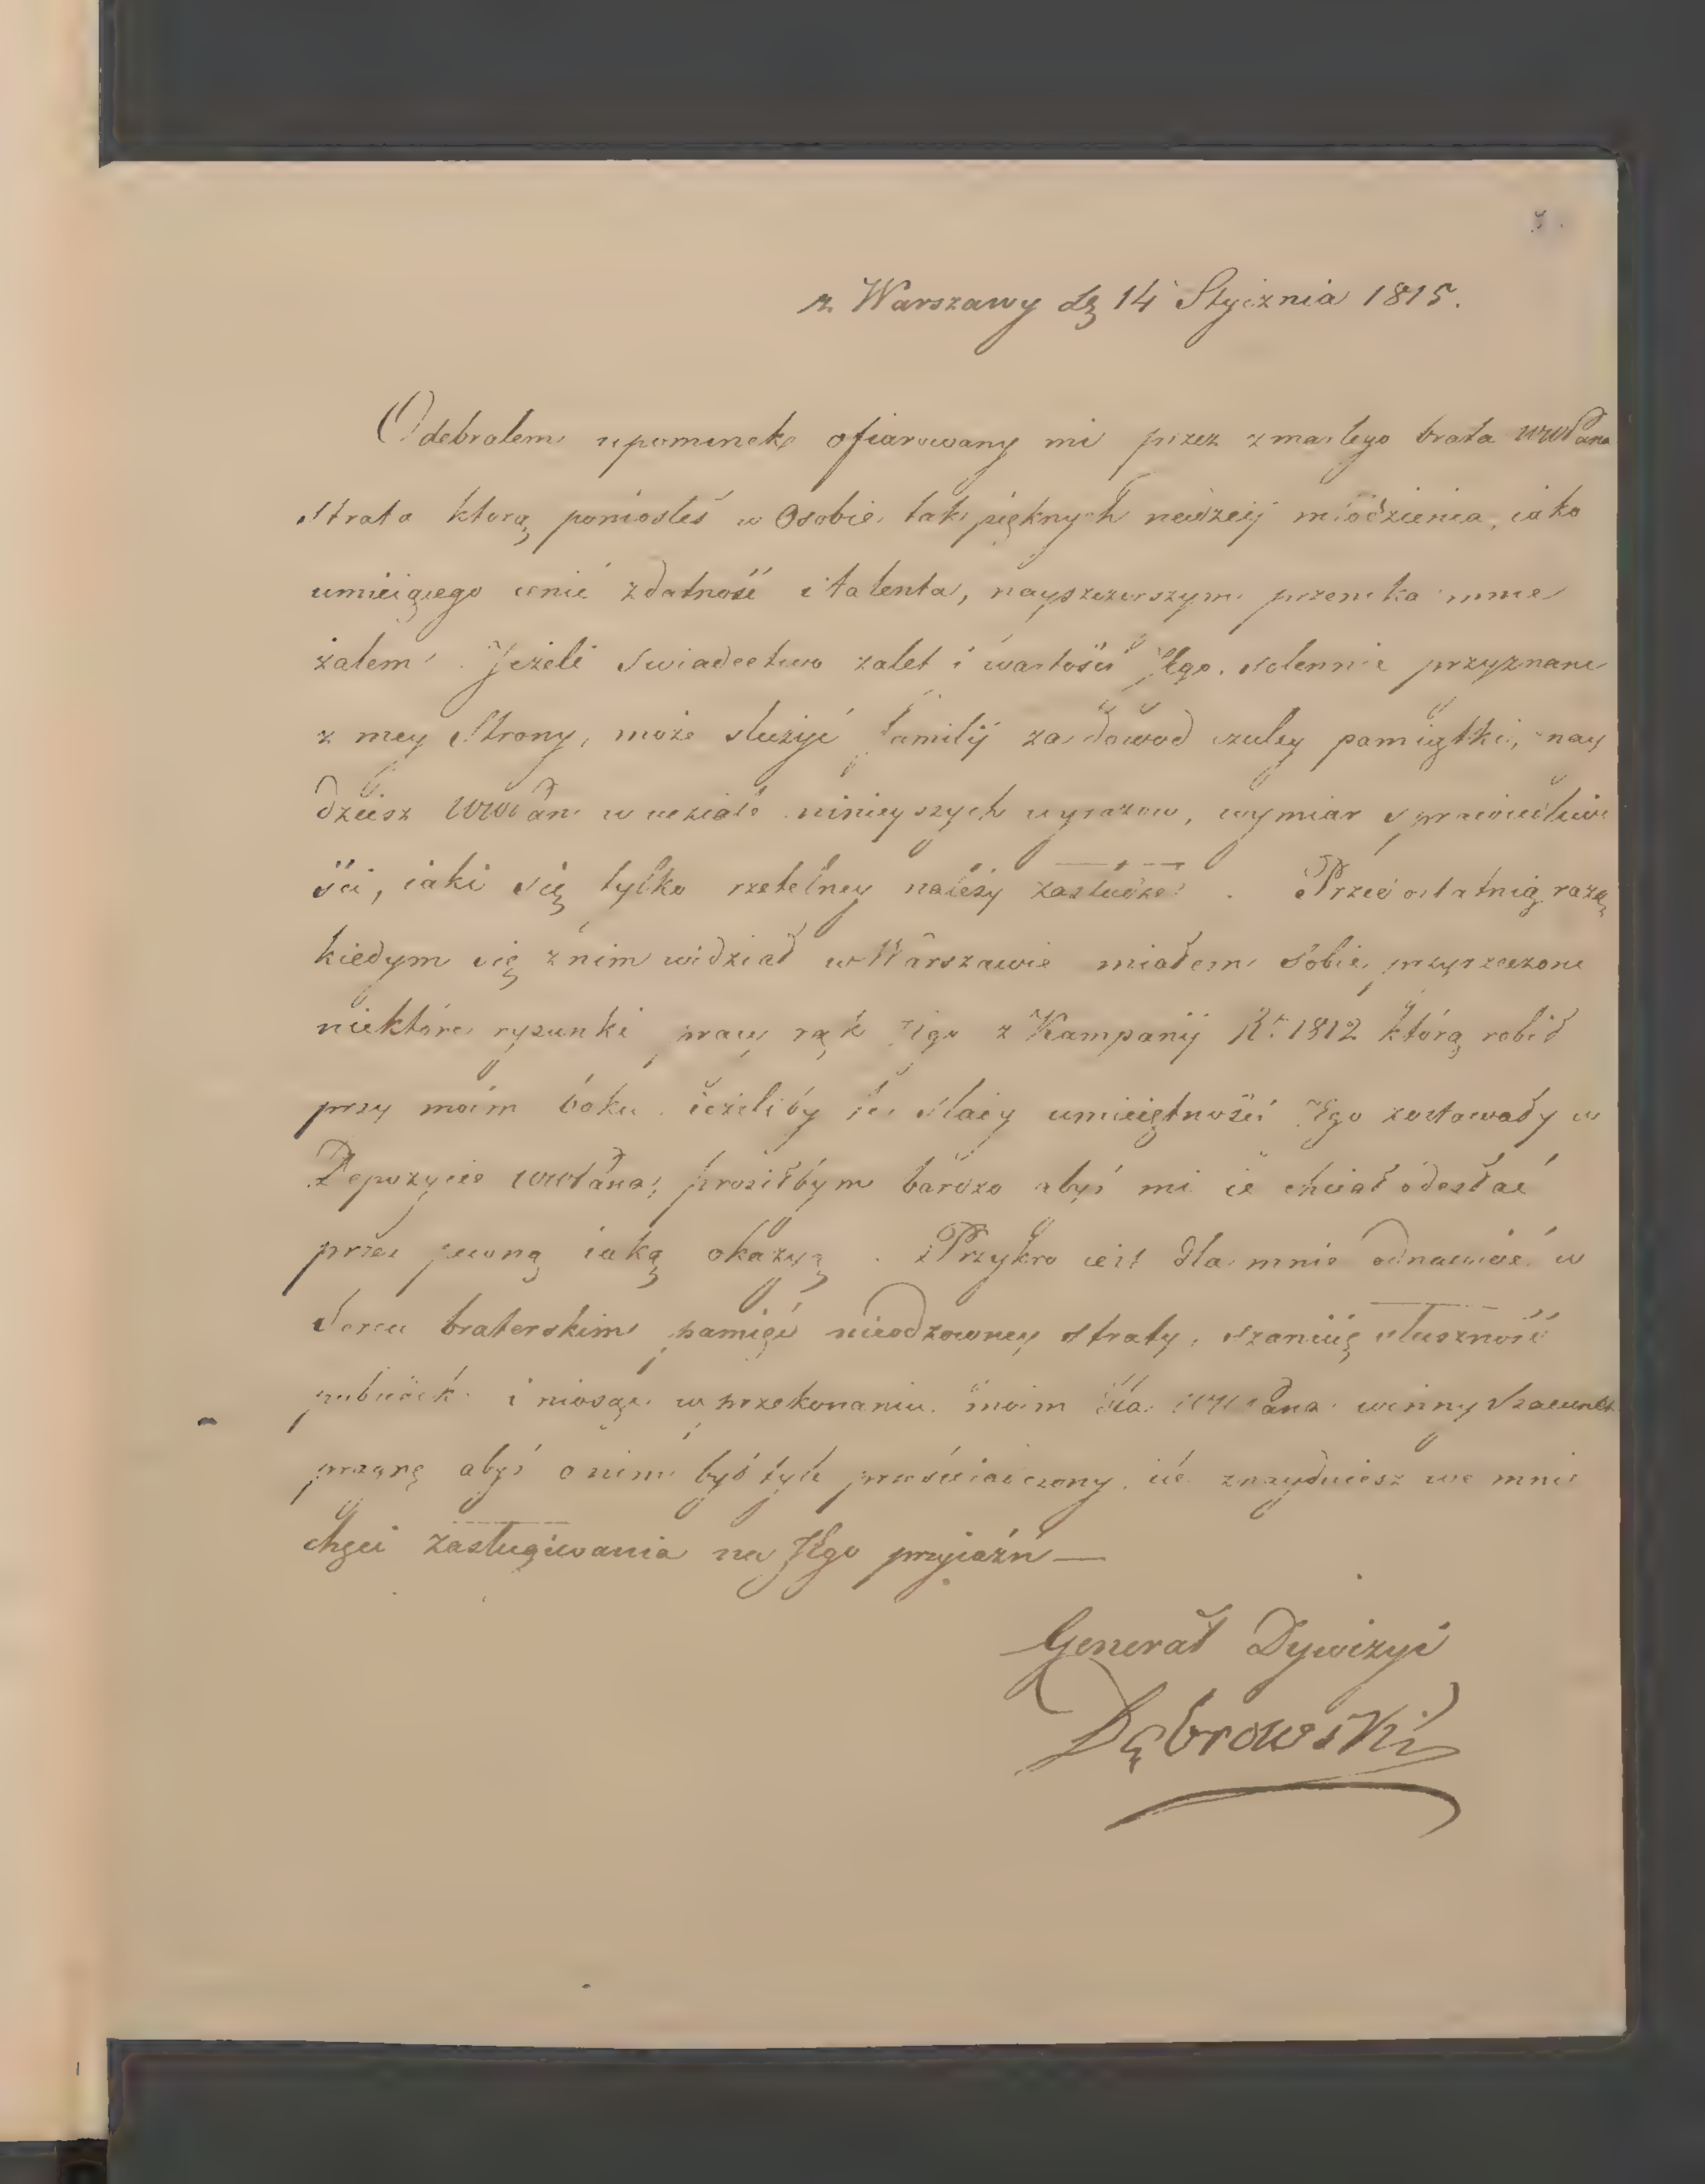 z Warszawy dζ 14 Stycznia 1815.
Odebrałem upominek ofiarowany mi przez zmarłego brata WWPana
Strata ktorą poniosłeś w Osobie tak pięknych nadzieij młodzienca, iako
umieiącego cenić zdatność i talenta, nayszczerszym przenika mnie
żalem. Jeżeli swiadectwo zalet i wartości Jego, solennie przyznane
z mey Strony, może służyć familij za dowod czułey pamiątki, nay
dziesz WWPan w udziale ninieyszych wyrazow, wymiar sprawiedliwo
ści, iaki się tylko rzetelney należy zasłudze. Przed ostatnią razą
kiedym się z nim widział w Warszawie miałem sobie przyrzeczone
niektóre rysunki pracy rąk Jego z Kampanij R. 1812 którą robił
przy moim boku. ieżeliby te slady umieiętności Jego zostawały w
Depozycie WWPana, prosiłbym bardzo abyś mi ie chciał odesłać
przez pewną iaką okazyą. Przykro iest dla mnie odnawiać w
Sercu braterskim pamięć nieodzowney straty, szanuię słuszność
pobudek i niosąc w przekonaniu moim dla WWPana winny Szacunek
pragnę abyś o nim był tyle przeświadczony, ile znaydziesz we mnie
chęci zasługiwania na Jego przyiaźń —
Generał Dywizyi
Dąbrowski